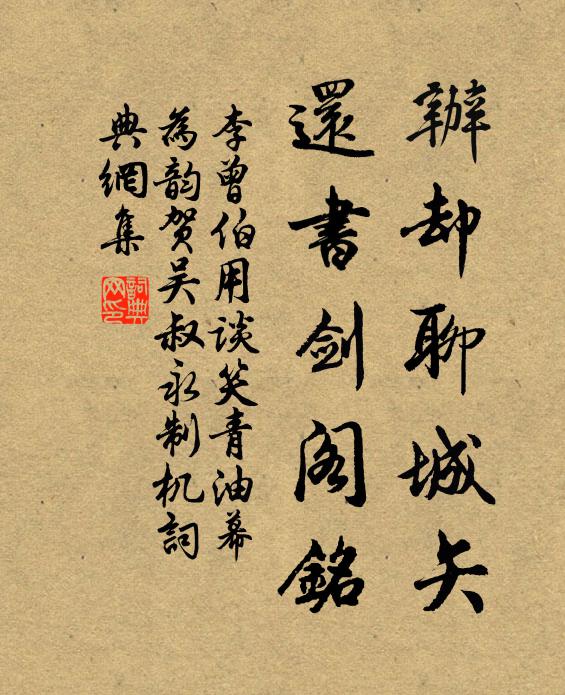 辦却聊城矢
還書劍阁銘
李曾伯用谈笑青油幕
為韵贺吴叔永制机詞
典網集
詞典网印